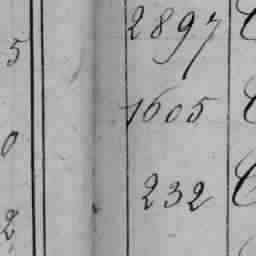 2897
5
1605
0
232
2